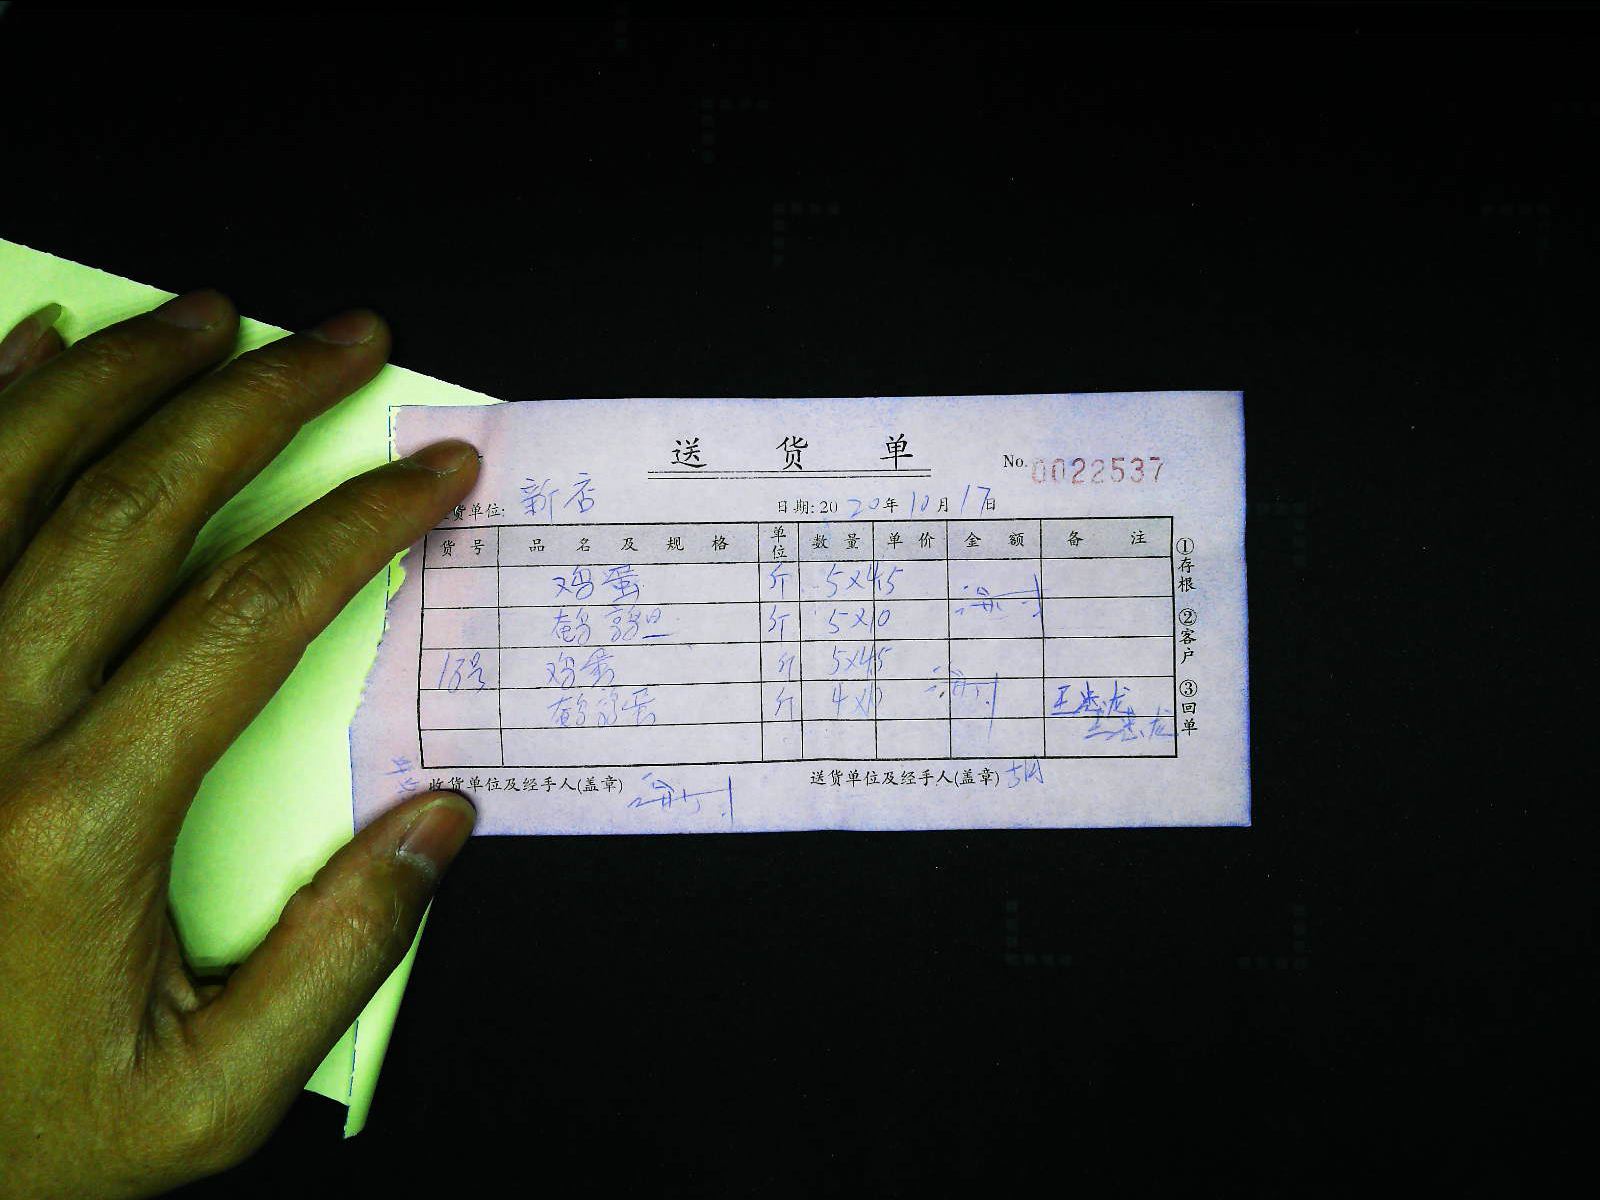 送货单
No. 0022537
货单位: 新店 日期: 2020年10月17日
货号 品名及规格 单位 数量 单价 金额 备注
鸡蛋 斤 5×45
鹌鹑旦 斤 5×10
13号 鸡蛋 斤 5×45
鹌鹑蛋 斤
①存根 ②客户 ③回单
收货单位及经手人(盖章) 送货单位及经手人(盖章)